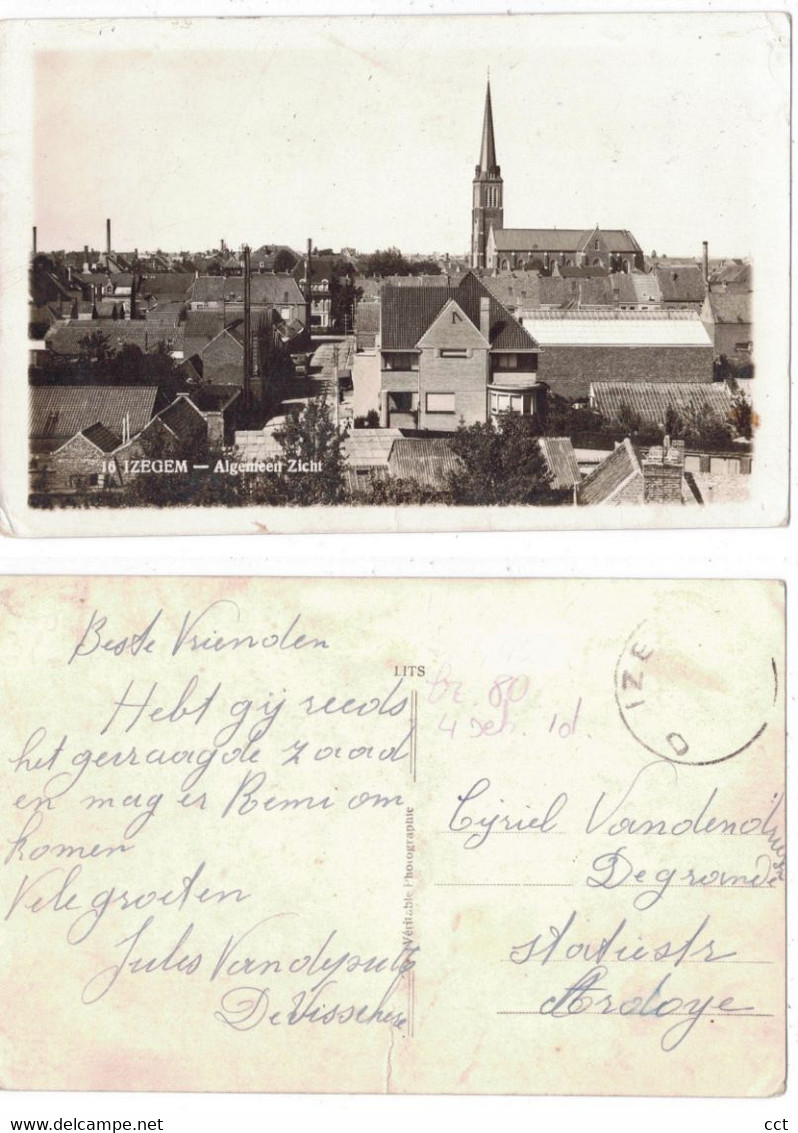 16 IZEGEM — Algemeen Zicht
Beste Vrienden
LITS
Hebt gij reeds
het gevraagde zaad
en mag er Remi om
komen
Vele groeten
Jules Vandeputte
De Visschere
Véritable Photographie
br. 80
4 Deh. 1d.
IZE
Cyriel Vandendriessche
Degrande
Statiestr
Ardoye
www.delcampe.net
cct